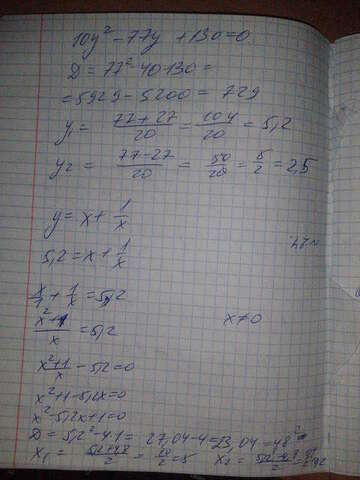 10y² - 77y + 130 = 0
D = 77² - 40·130 =
= 5929 - 5200 = 729
y₁ = (77+27)/20 = 104/20 = 5,2
y₂ = (77-27)/20 = 50/20 = 5/2 = 2,5
y = x + 1/x
5,2 = x + 1/x
x/1 + 1/x = 5,2
(x²+1)/x = 5,2
x ≠ 0
(x²+1)/x - 5,2 = 0
x² + 1 - 5,2x = 0
x² - 5,2x + 1 = 0
D = 5,2² - 4·1 = 27,04 - 4 = 23,04 = 48²
x₁ = (5,2+4,8)/2 = 10/2 = 5 x₂ =